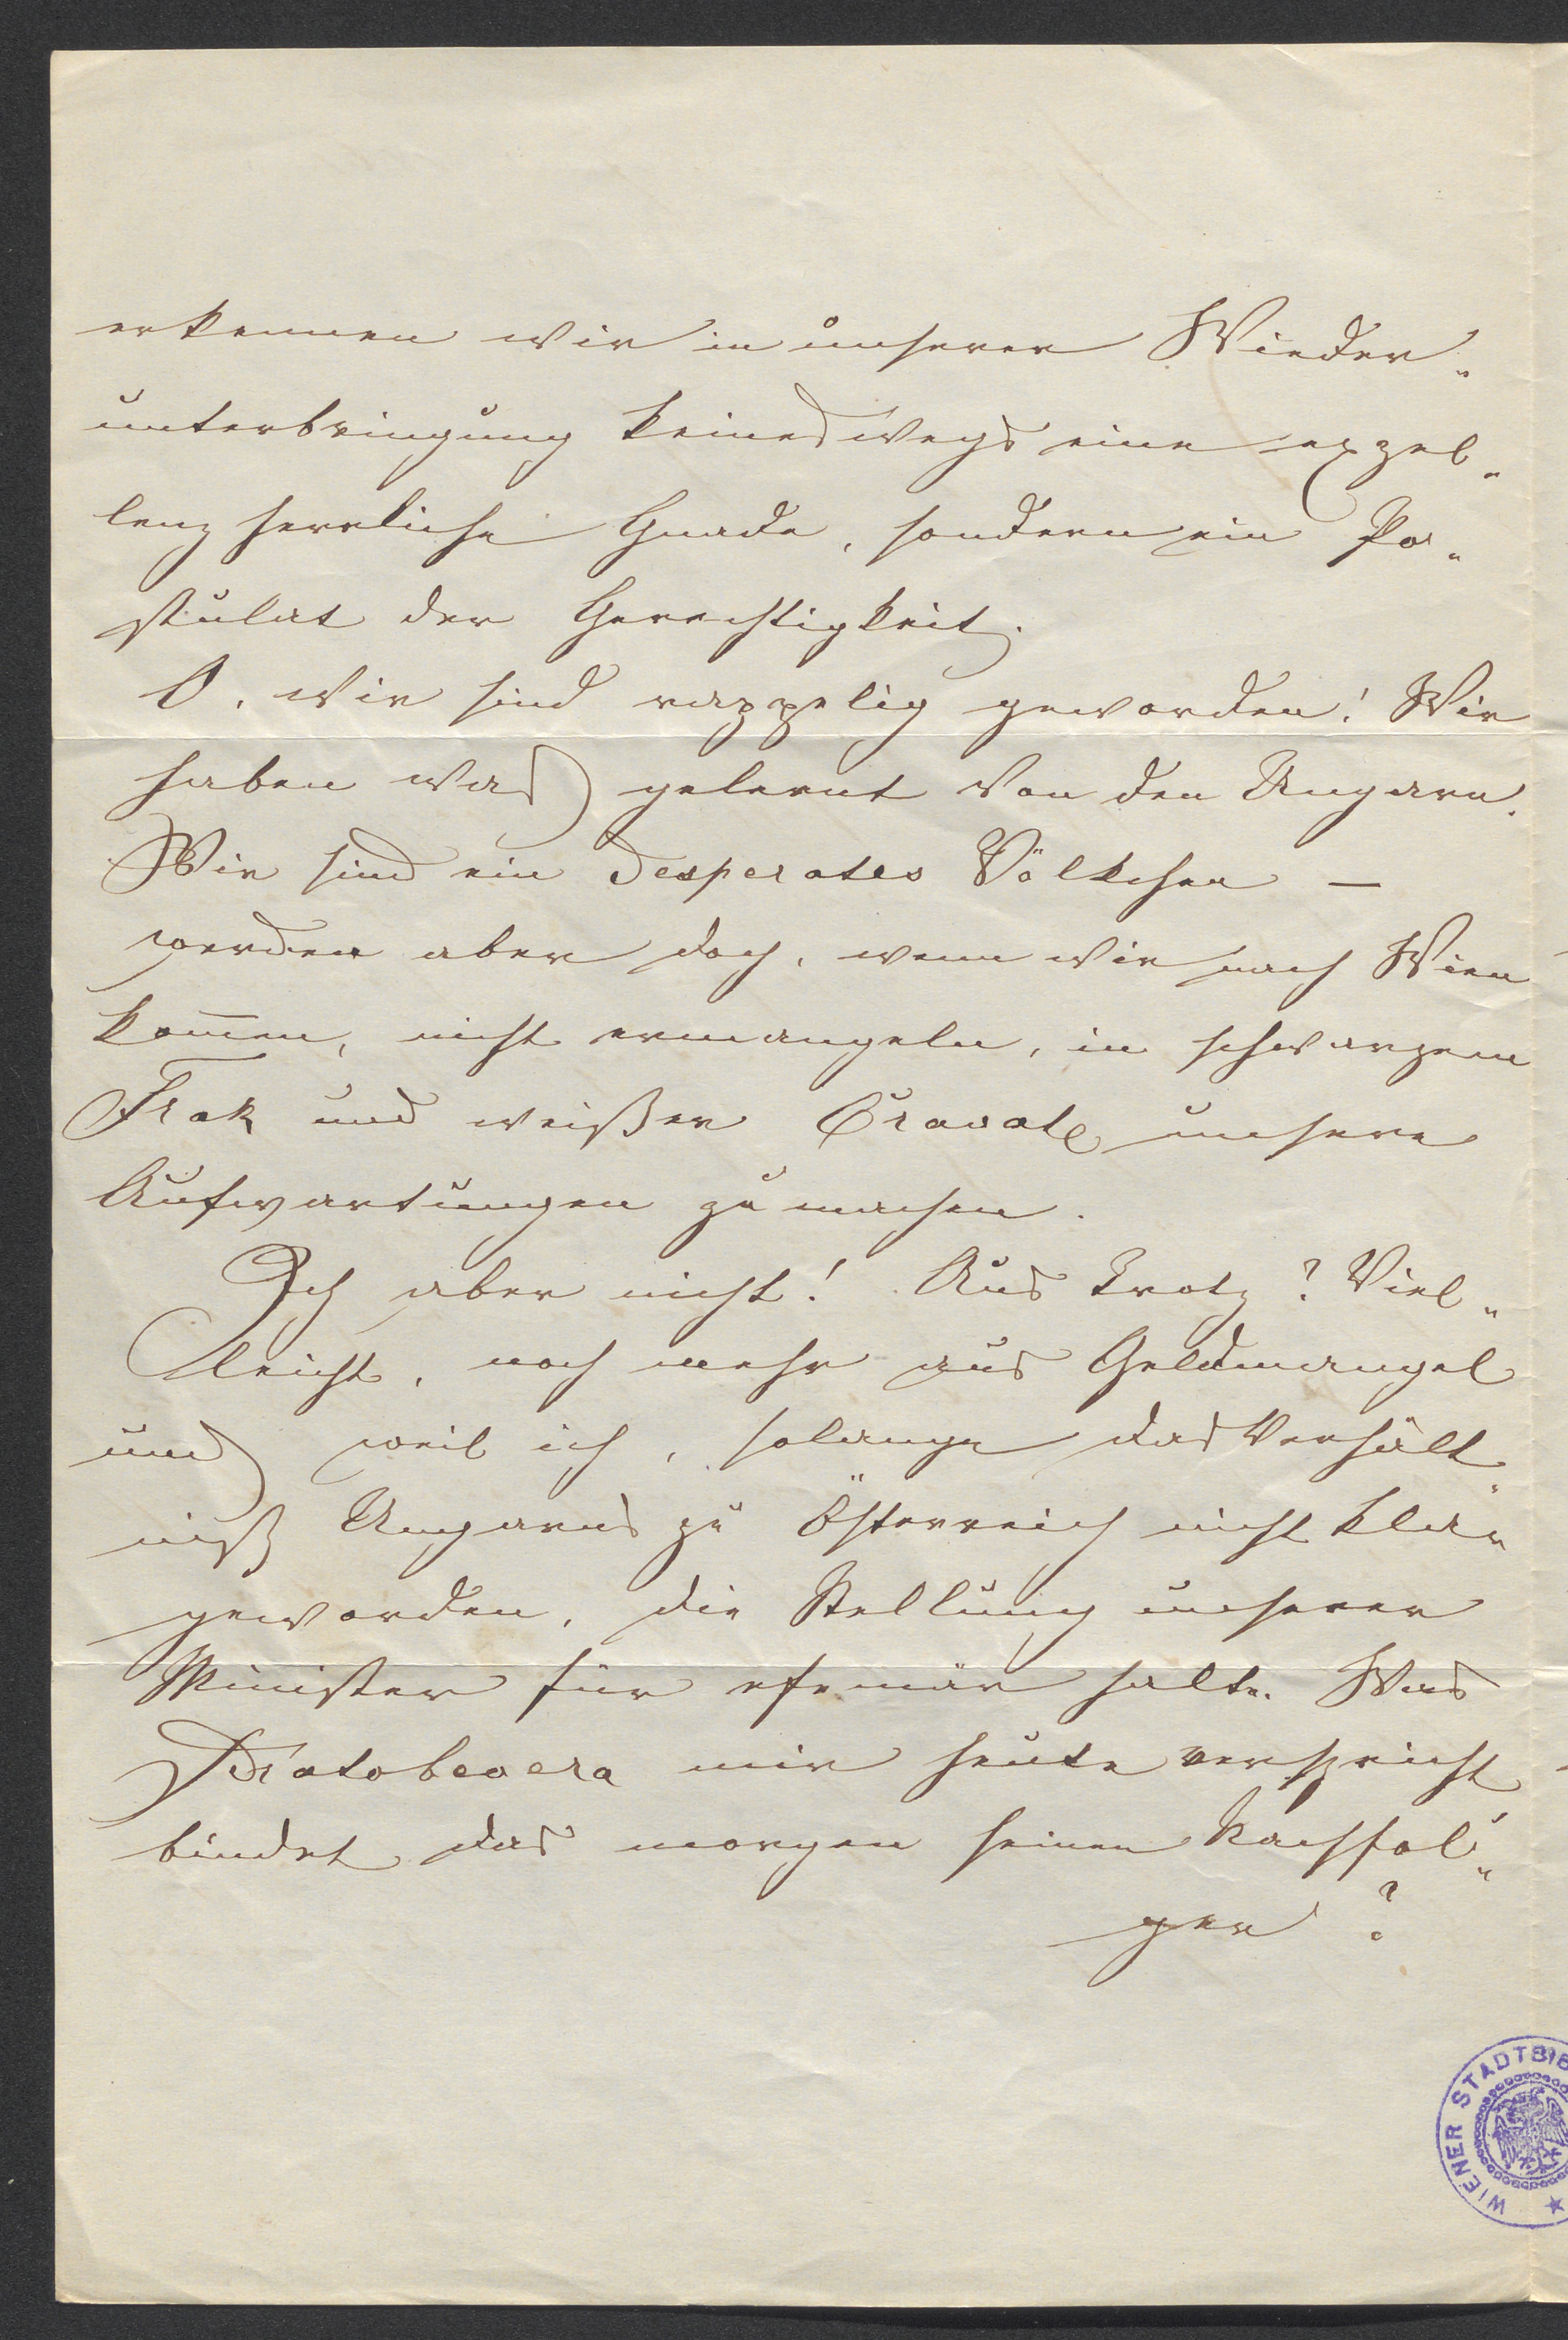 erkennen wir in unserer Wieder„
unterbringung keineswegs eine exzel„
lenz herrliche Gnade, sondern ein Po„
stulat der Gerechtigkeit.
O, wir sind rappelig geworden! Wir
haben was gelernt von den Ungarn.
Wir sind ein desperates Völkchen —
werden aber doch, wenn wir nach Wien
kom̅en, nicht ermangeln, in schwarzem
Frak und weißer Cravate unsere
Aufwartungen zu machen.
Ich aber nicht! Aus Trotz? Viel„
leicht, noch mehr aus Geldmangel
und weil ich, solange das Verhält„
niß Ungarns zu Österreich nicht klar
geworden, die Stellung unserer
Minister für efemär halte. Was
Pratobevera mir heute verspricht
bindet das morgen seinen Nachfol„
ger?
WIENER STADTBIB